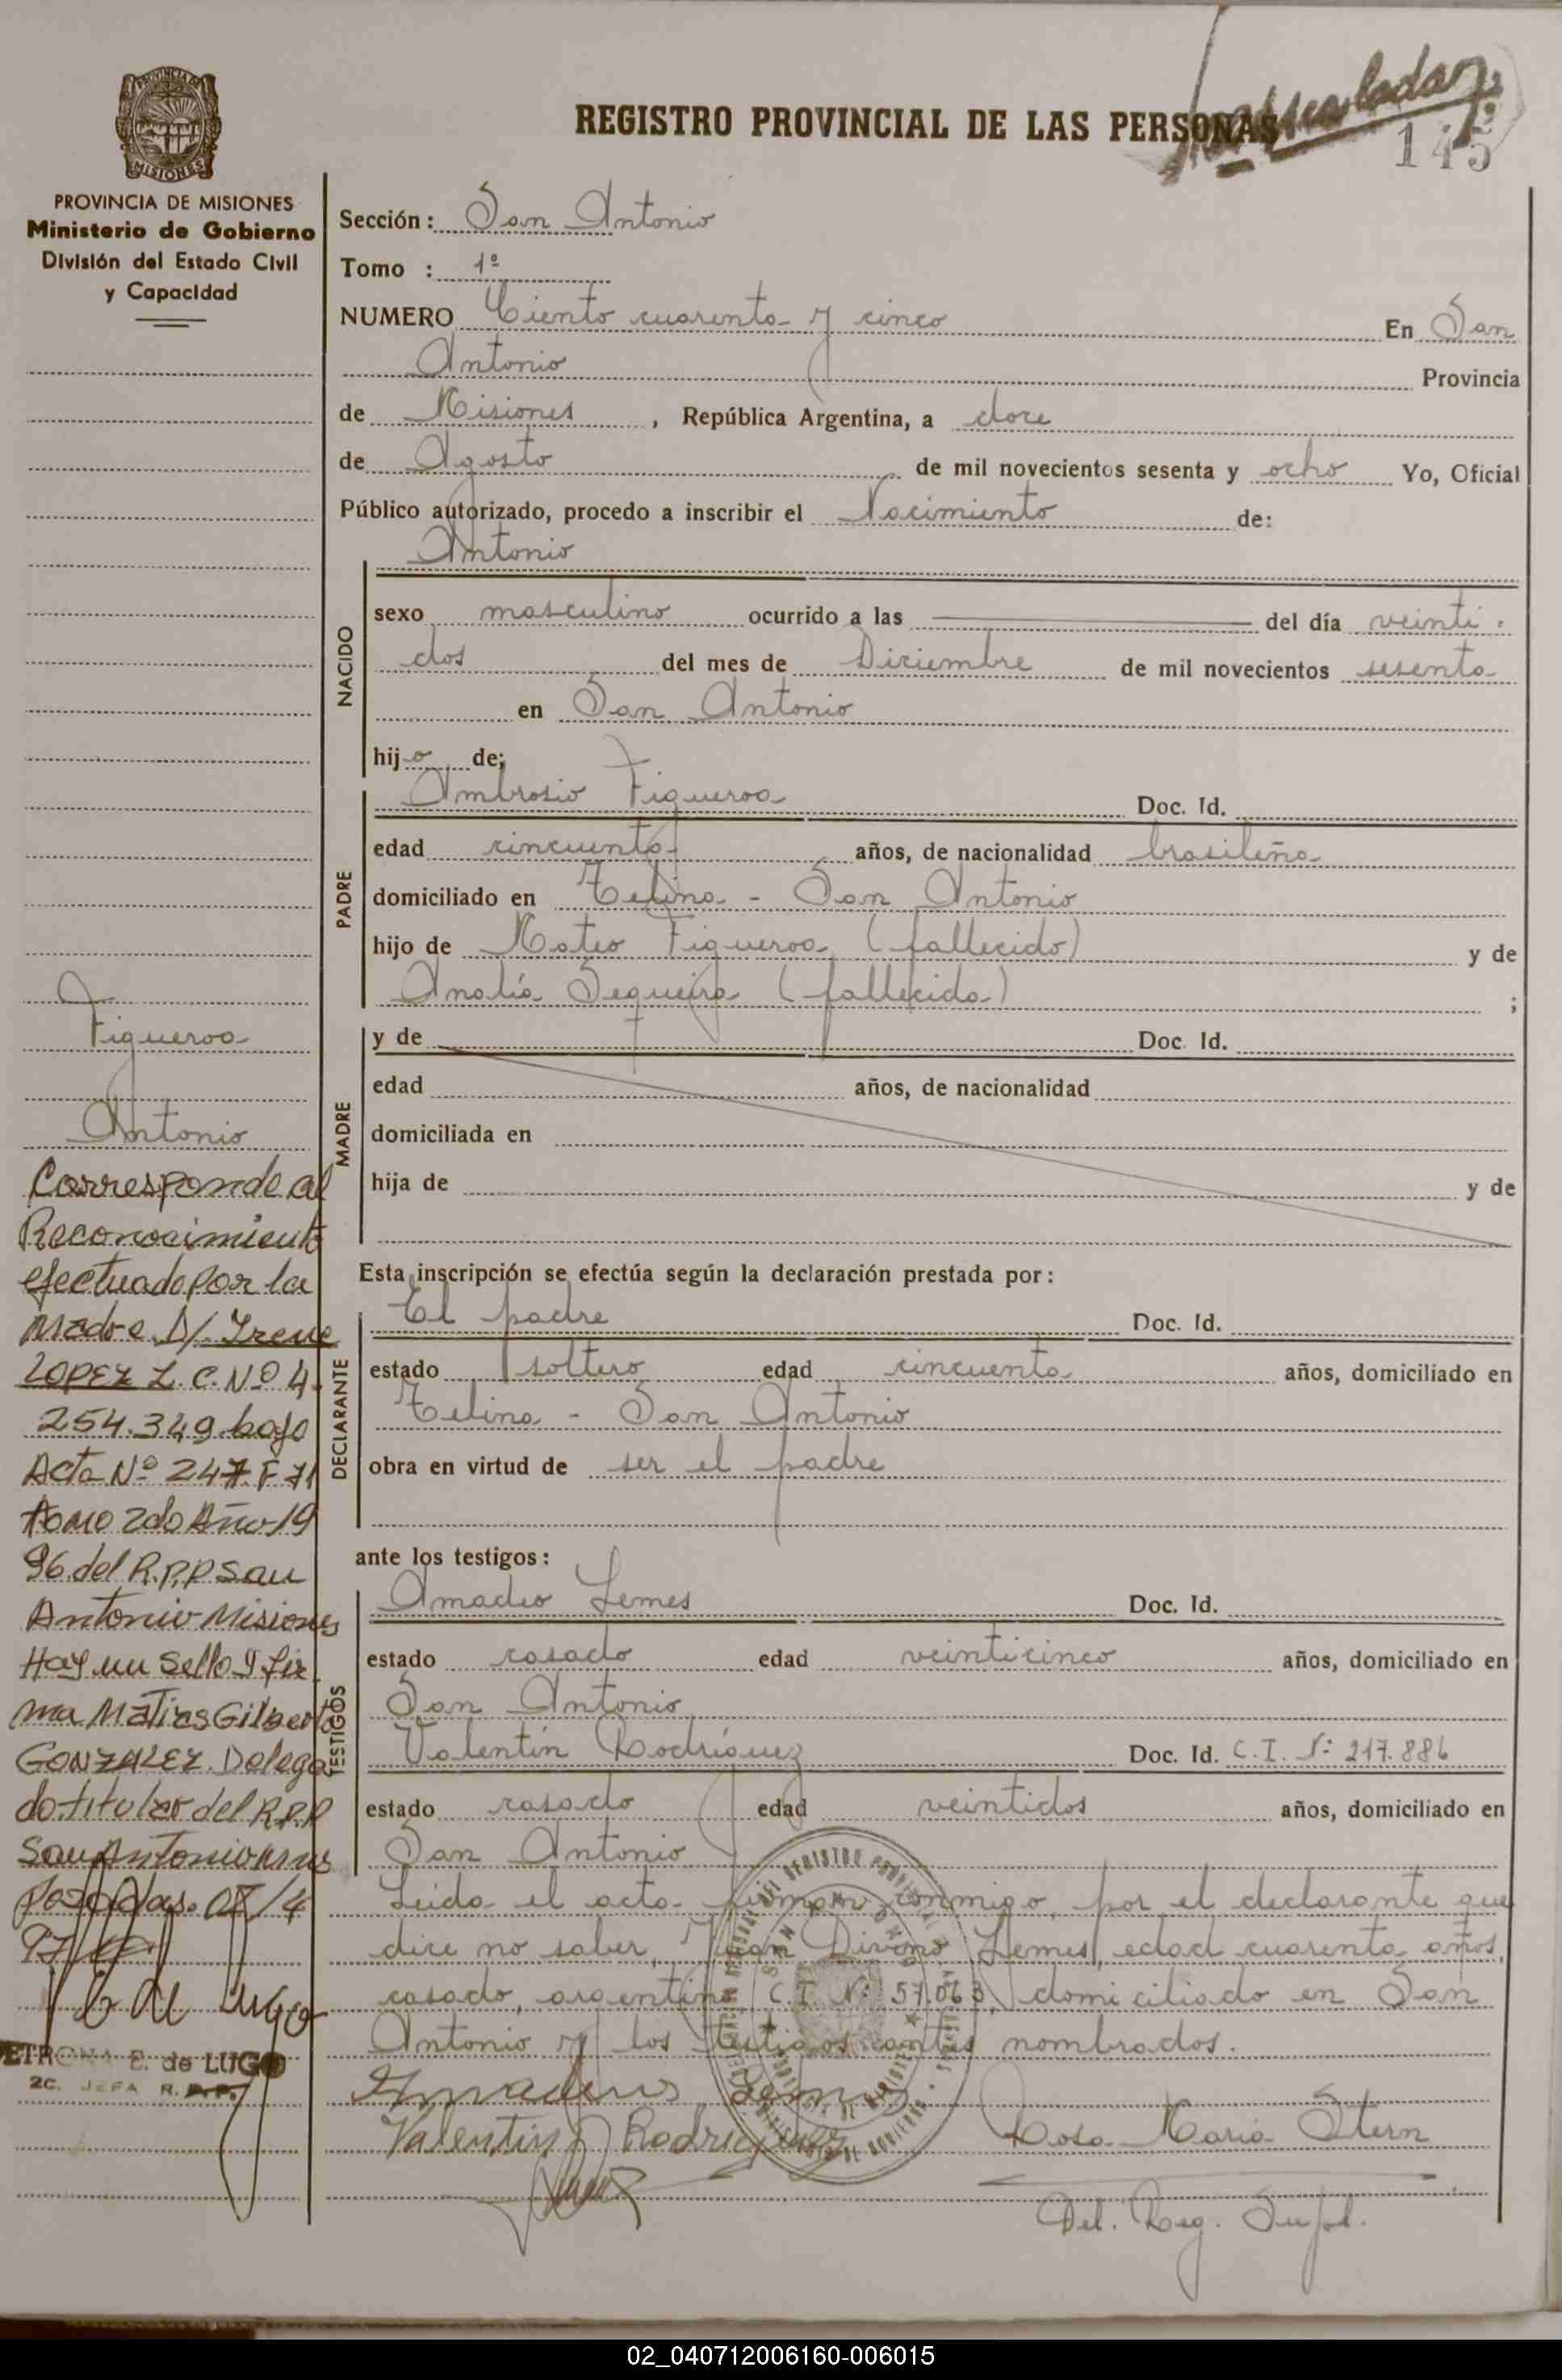 REGISTRO PROVINCIAL DE LAS PERSONAS
145
MISIONES
PROVINCIA DE MISIONES
Ministerio de Gobierno
División del Estado Civil
y Capacidad
Sección: San Antonio
Tomo : 1º
NUMERO Ciento cuarenta y cinco En San
Antonio Provincia
de Misiones, República Argentina, a doce
de Agosto de mil novecientos sesenta y ocho Yo, Oficial
Público autorizado, procedo a inscribir el Nacimiento de:
Antonio
NACIDO
sexo masculino ocurrido a las del día veinti
dos del mes de Diciembre de mil novecientos sesenta
en San Antonio
hijo de;
PADRE
Ambrosio Figueroa Doc. Id.
edad cincuenta años, de nacionalidad brasileña
domiciliado en - San Antonio
hijo de Mateo Figueroa (fallecido) y de
Analía Sequeira (fallecida) ;
MADRE
y de Doc. Id.
edad años, de nacionalidad
domiciliada en
hija de y de
Esta inscripción se efectúa según la declaración prestada por:
DECLARANTE
El padre Doc. Id.
estado soltero edad cincuenta años, domiciliado en
- San Antonio
obra en virtud de ser el padre
ante los testigos:
TESTIGOS
Amadeo Lemes Doc. Id.
estado casado edad veinticinco años, domiciliado en
San Antonio
Valentín Rodríguez Doc. Id. C.I. Nº 217.886
estado casado edad veintidos años, domiciliado en
San Antonio
Leída el acta firman conmigo, por el declarante que
dice no saber, Juan Lemes, edad cuarenta años,
casado, argentino C.I. Nº 57.063, domiciliado en San
Antonio y los testigos antes nombrados.
Amadeus Lemes
Valentin Rodriguez
Rosa Maria Stern
Del. Reg. Supl.
Figueroa
Antonio
Corresponde al
Reconocimiento
efectuado por la
Madre D/. Irene
LOPEZ L.C. Nº 4.
254.349 bajo
Acta Nº 247. F 71
tomo 2do Año 19
96 del R.P.P San
Antonio Misiones
Hay un sello y fir
ma Matias Gilberto
GONZALEZ. Delega
do titular del R.P.P
San Antonio Mnes
Posadas. 07/4
97
PETRONA E. de LUGO
2C. JEFA R.P.P.
02_040712006160-006015